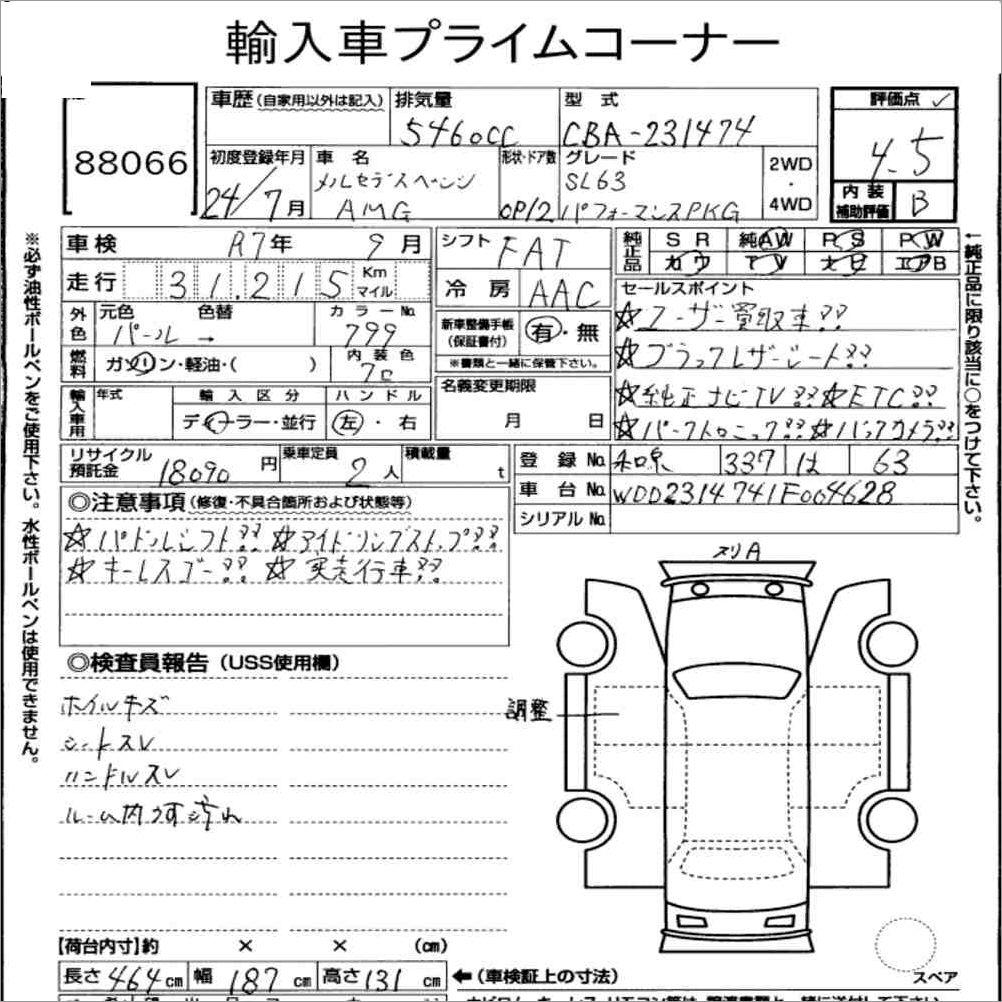 輸入車プライムコーナー
88066
車歴(自家用以外は記入)
排気量
5460cc
型式
CBA-231474
評価点 ✓
4.5
内装補助評価 B
初度登録年月
24/7月
車名
メルセデスベンツ
AMG
形状・ドア数
OP/2
グレード
SL63
パフォーマンスPKG
2WD
・
4WD
車検 R7年 9月
走行 31,215 Km マイル
外色 元色 色替 カラーNo.
パール → 799
燃料 ガソリン・軽油・( )
内装色
クロ
輸入車用 年式 輸入区分 ハンドル
ディーラー・並行 左・右
シフト FAT
冷房 AAC
新車整備手帳(保証書付) 有・無
※書類と一緒に保管下さい。
名義変更期限
月 日
純正品 SR 純AW PS PW
カワ TV ナビ エアB
セールスポイント
☆ユーザー買取車!!
☆ブラックレザーシート!!
☆純正ナビTV!! ☆ETC!!
☆パークトロニック!! ☆バックカメラ!!
←純正品に限り該当に○をつけて下さい。
※必ず油性ボールペンをご使用下さい。水性ボールペンは使用できません。
リサイクル預託金 18090円
乗車定員 2人
積載量 t
登録No. 和泉 337 は 63
車台No. WDD2314741F004628
シリアルNo.
◎注意事項(修復・不具合箇所および状態等)
☆パドルシフト!! ☆アイドリングストップ!!
☆キーレスゴー!! ☆実走行車!!
◎検査員報告(USS使用欄)
ホイルキズ
シートスレ
ハンドルスレ
ルーム内うす汚れ
スリA
調整
スペア
【荷台内寸】約 × × (cm)
長さ464cm 幅187cm 高さ131cm ←(車検証上の寸法)